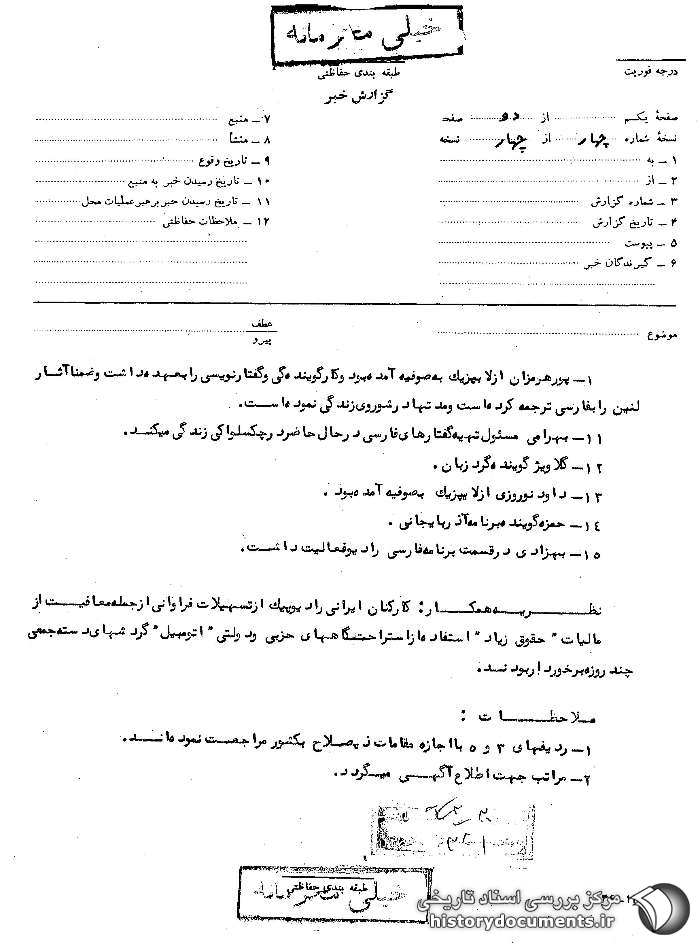 خیلی محرمانه
طبقه بندی حفاظتی
درجه فوریت
گزارش خبر
صفحهٔ یکم از دو صفحه
نسخهٔ شماره چهار از چهار نسخه
۱ــ به
۲ــ از
۳ــ شماره گزارش
۴ــ تاریخ گزارش
۵ــ پیوست
۶ــ گیرندگان خبر
۷ــ منبع
۸ــ منشأ
۹ــ تاریخ وقوع
۱۰ــ تاریخ رسیدن خبر به منبع
۱۱ــ تاریخ رسیدن خبر برهبر عملیات محل
۱۲ــ ملاحظات حفاظتی
موضوع
عطف
پیرو
۱ــ پورهرمزان از لایپزیک به صوفیه آمده بود وکارگویندهگی وگفتارنویسی را بعهده داشت وضمنا آثار
لنین را بفارسی ترجمه کرده است ومدتها در شوروی زندگی نموده است.
۱۱ــ بهرامی مسئول تهیه گفتارهای فارسی در حال حاضر در چکسلواکی زندگی میکند.
۱۲ــ گلاویژ گوینده کرد زبان.
۱۳ــ داود نوروزی از لایپزیک بصوفیه آمده بود.
۱۴ــ حمزه گوینده برنامه آذربایجانی.
۱۵ــ بهزادی در قسمت برنامه فارسی رادیو فعالیت داشت.
نظریه همکار: کارکنان ایرانی رادیو پیک از تسهیلات فراوانی از جمله معافیت از
مالیات " حقوق زیاد " استفاده از استراحتگاههای حزبی ودولتی " اتومبیل " گردشهای دسته جمعی
چند روزه برخوردار بودند.
ملاحظات:
۱ــ ردیفهای ۳ و ۵ با اجازه مقامات ذیصلاح بکشور مراجعت نموده اند.
۲ــ مراتب جهت اطلاع آگهی میگردد.
طبقه بندی حفاظتی
خیلی محرمانه
مرکز بررسی اسناد تاریخی
historydocuments.ir